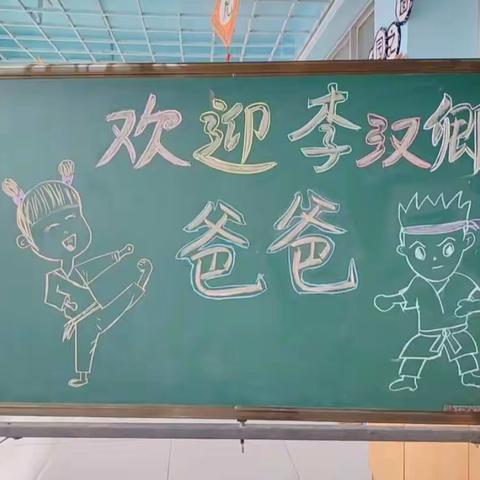 欢迎李汉卿
爸爸